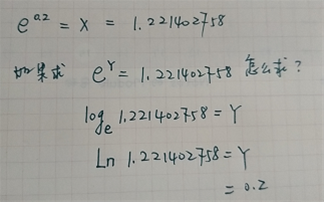 e^0.2 = x = 1.221402758
如果求 e^Y = 1.221402758 怎么求?
log_e 1.221402758 = Y
Ln 1.221402758 = Y
= 0.2